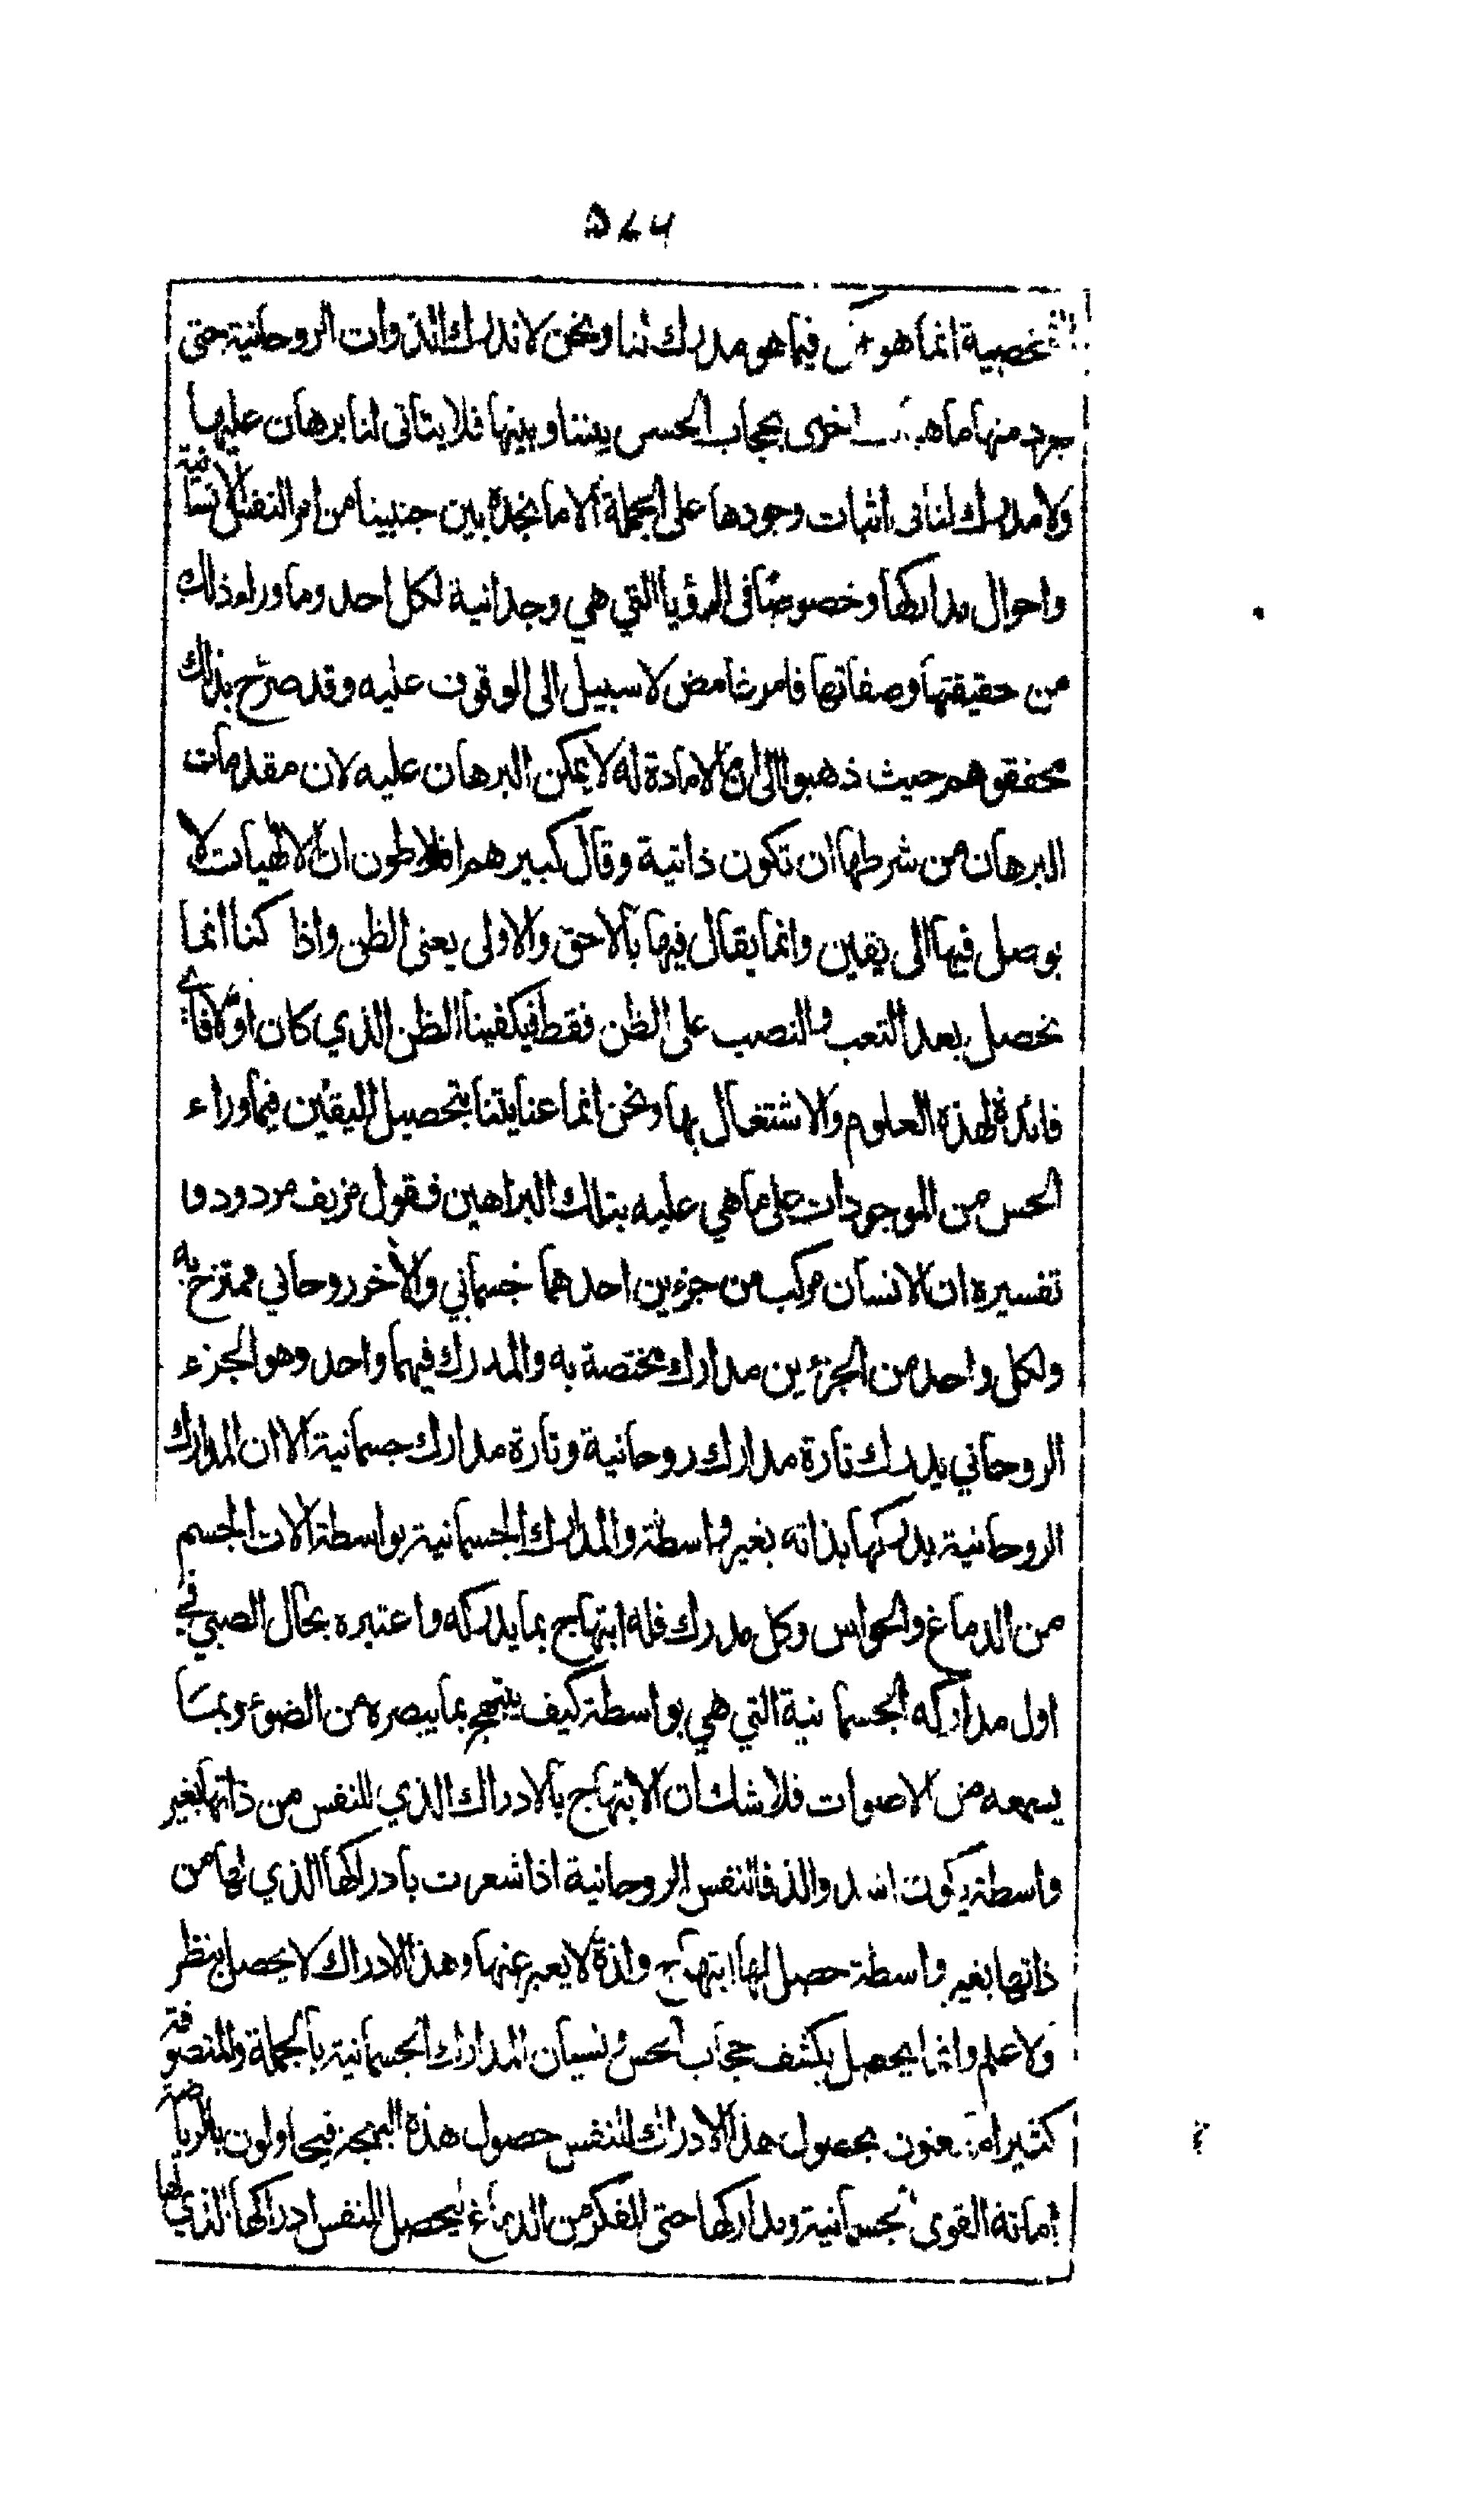 ۵۷۴
الشخصية انما هو فيما هو مدرك لنا ونحن لا ندرك الذوات الروحانية حتى
جرد منها ماهيات اخرى بحجاب الحس بيننا وبينها فلا يتاتى لنا برهان عليها
ولا مدرك لنا فى اثبات وجودها على الجملة الا ما نجده بين جنبينا من امر النفس الانسانية
واحوال مداركها وخصوصا فى الرؤيا التي هي وجدانية لكل احد وما وراء ذلك
من حقيقتها وصفاتها فامر غامض لا سبيل الى الوقوف عليه وقد صرّح بذلك
محققوهم حيث ذهبوا الى ان ما لا مادة له لا يمكن البرهان عليه لان مقدمات
البرهان من شرطها ان تكون ذاتية وقال كبيرهم افلاطون ان الالهيات لا
يوصل فيها الى يقين وانما يقال فيها بالاحق والاولى يعنى الظن واذا كنا انما
نحصل بعد التعب والنصب على الظن فقط فيكفينا الظن الذي كان اوّلا فاي
فائدة لهذه العلوم والاشتغال بها ونحن انما عنايتنا بتحصيل اليقين فيما وراء
الحس من الموجودات على ما هي عليه بتلك البراهين فقول مزيف مردود و
تفسيره ان الانسان مركب من جزءين احدهما جسماني والآخر روحاني ممتزج به
ولكل واحد من الجزءين مدارك مختصة به والمدرك فيهما واحد وهو الجزء
الروحاني يدرك تارة مدارك روحانية وتارة مدارك جسمانية الا ان المدارك
الروحانية يدركها بذاته بغير واسطة والمدارك الجسمانية بواسطة الات الجسم
من الدماغ والحواس وكل مدرك فله ابتهاج بما يدركه واعتبره بحال الصبي في
اول مداركه الجسمانية التي هي بواسطة كيف يبتهج بما يبصره من الضوء وبما
يسمعه من الاصوات فلا شك ان الابتهاج بالادراك الذي للنفس من ذاتها بغير
واسطة يكون اشد والذ فالنفس الروحانية اذا شعرت بادراكها الذي لها من
ذاتها بغير واسطة حصل لها ابتهاج ولذة لا يعبر عنها وهذا الادراك لا يحصل بنظر
ولا علم وانما يحصل بكشف حجاب الحس ونسيان المدارك الجسمانية بالجملة والمتصوفة
كثيرا ما يعنون بحصول هذا الادراك للنفس حصول هذه البهجة فيحاولون بالرياضة
اماتة القوى الجسمانية ومداركها حتى الفكر من الدماغ ليحصل للنفس ادراكها الذي لها